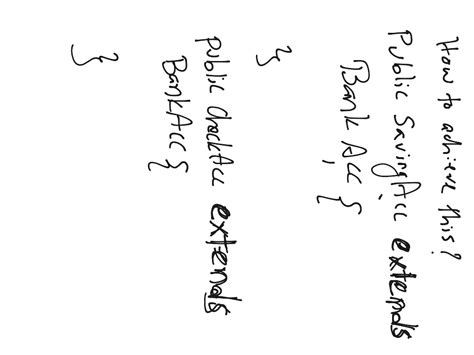 How to achieve this?
Public SavingAcc extends
BankAcc {
}
public checkAcc extends
BankAcc {
}